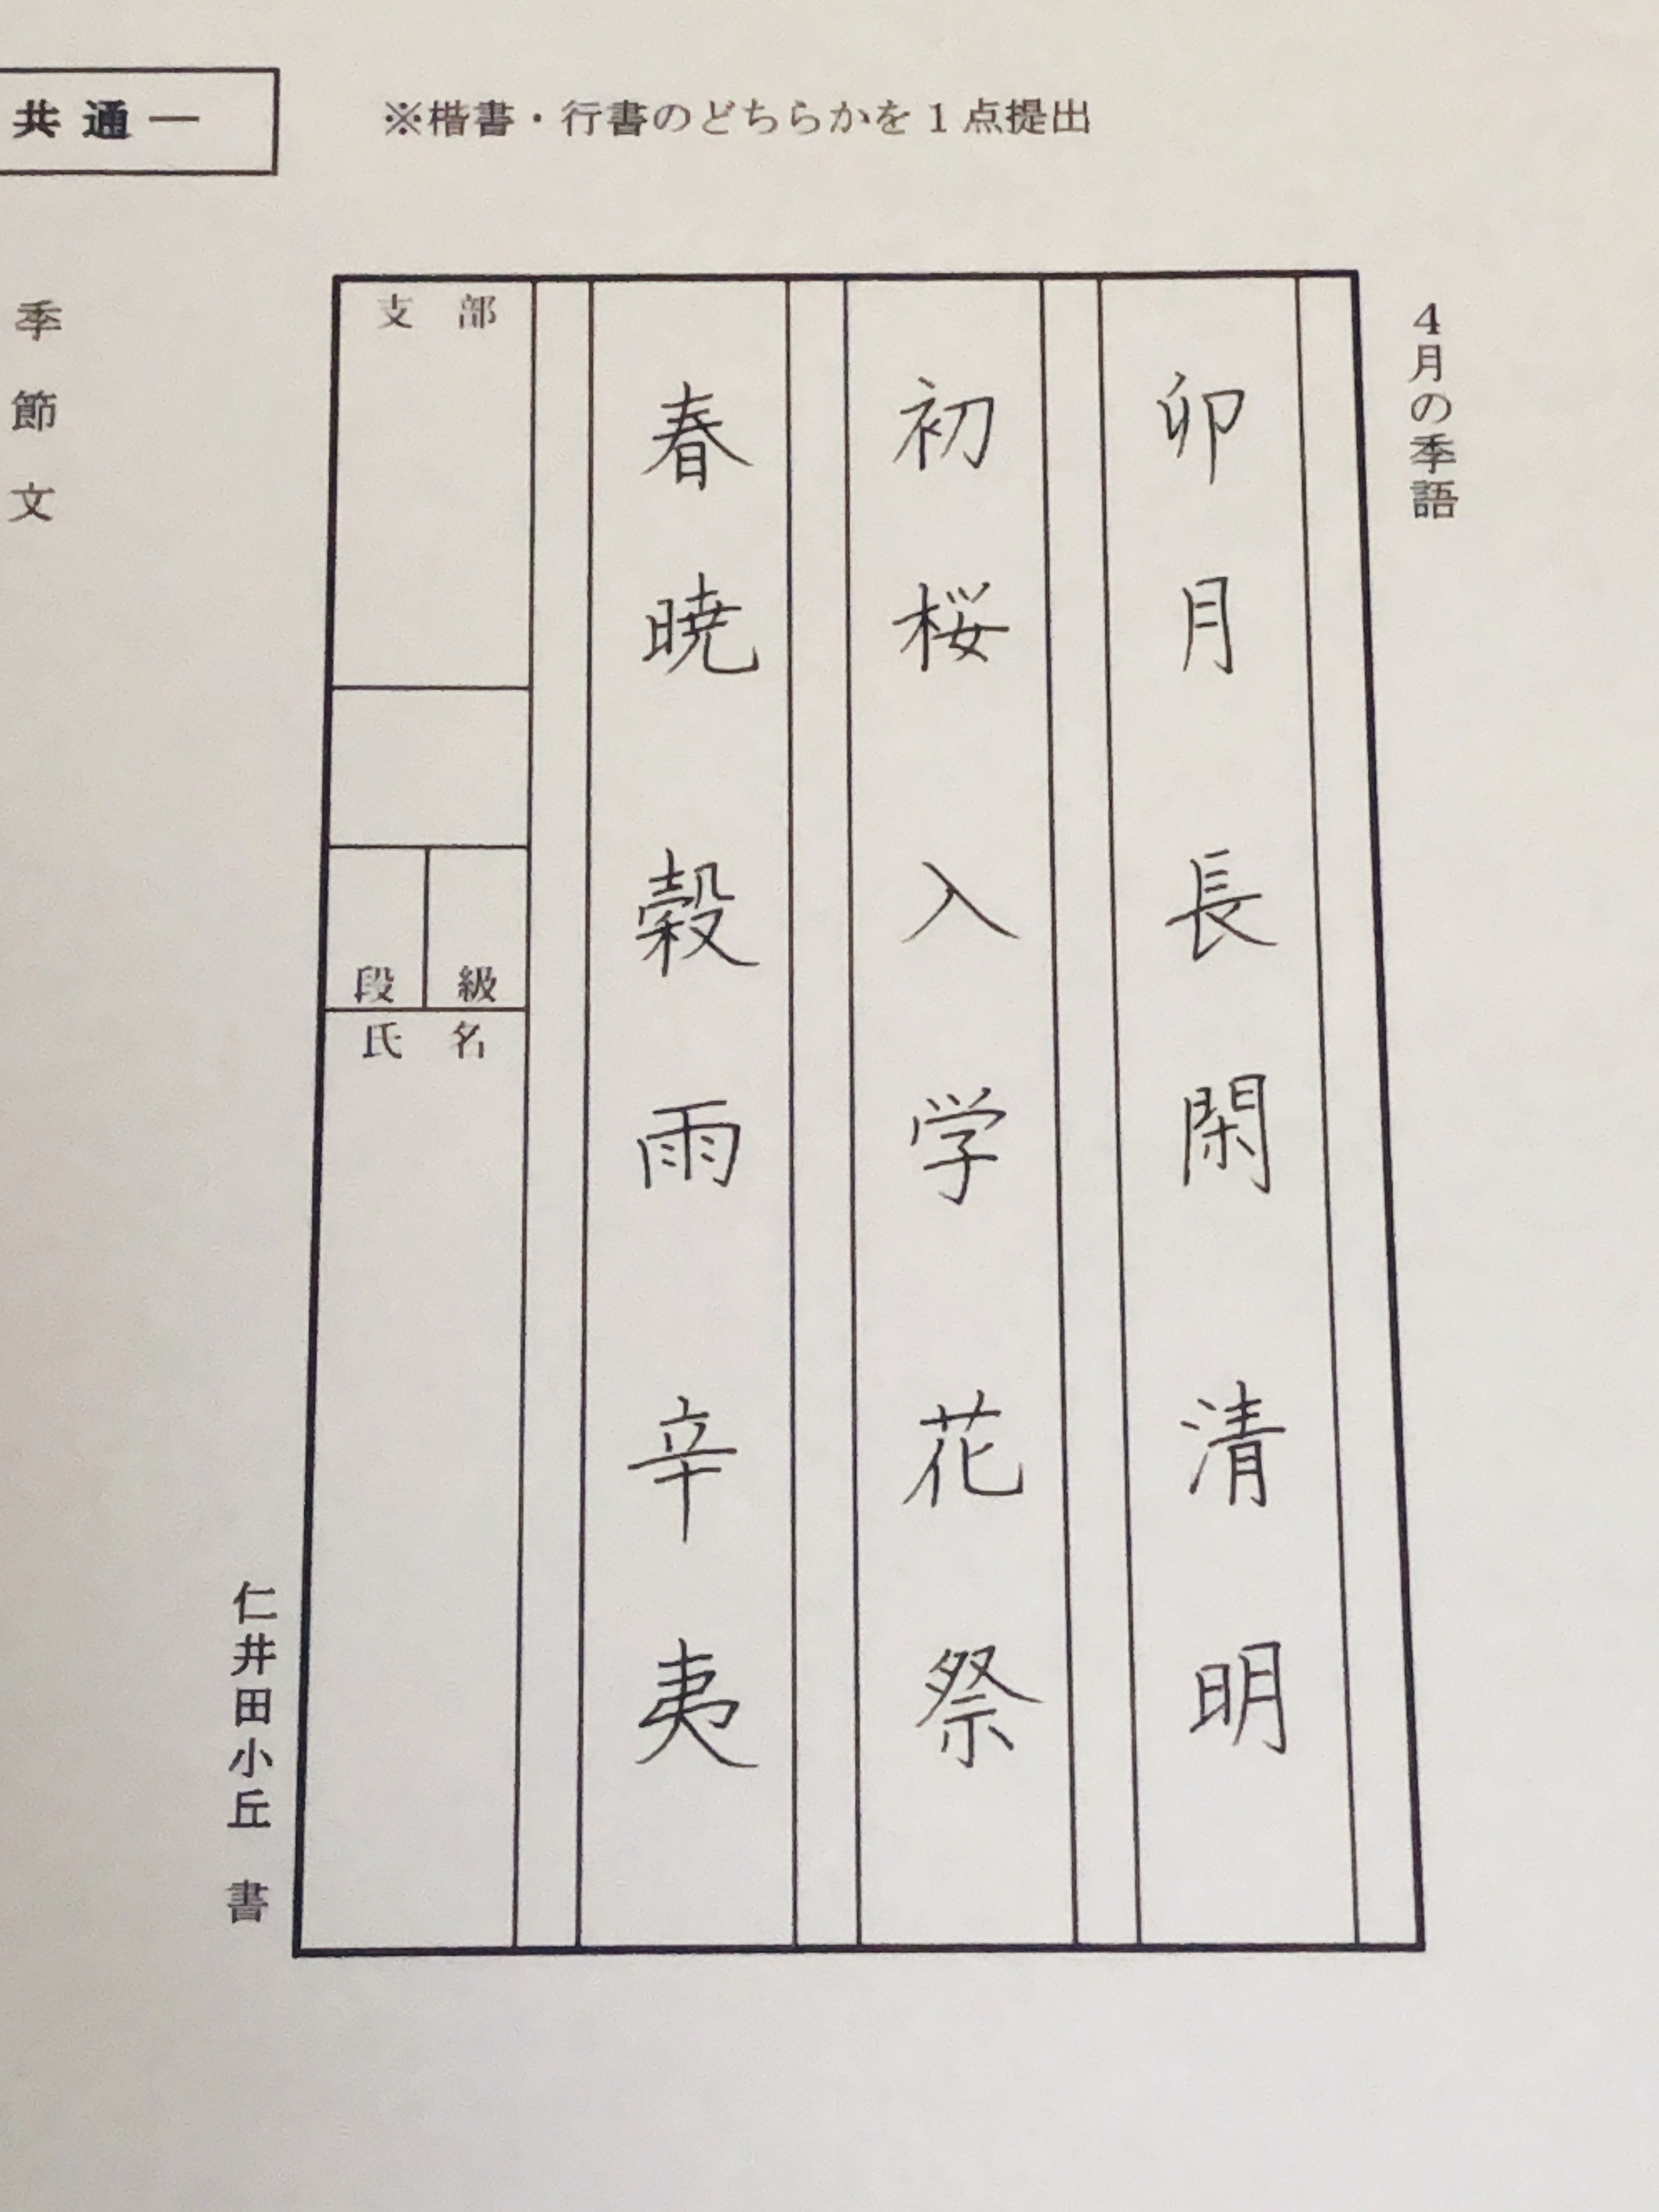 共通一
※楷書・行書のどちらかを1点提出
4月の季語
卯月 長閑 清明
初桜 入学 花祭
春暁 穀雨 辛夷
支部
段 級
氏名
仁井田小丘 書
季節文